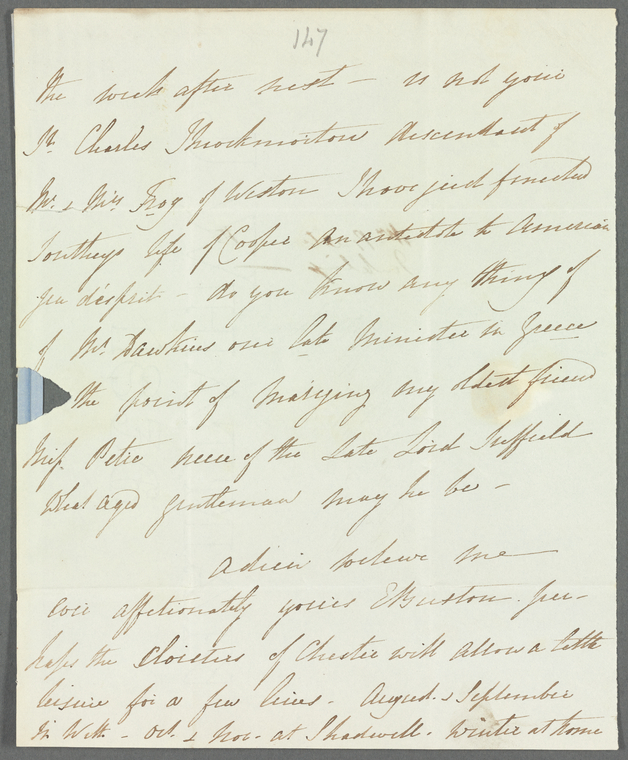 147
the week after next – is not your
Sr. Charles Throckmorton descendant of
Mr. & Mrs Frog of Weston I have just finished
Southeys life of Cooper an antidote to American
jeu d'esprit – do you know any thing of
of Mr. Dawkins our late Minister in Greece
the point of marrying my oldest friend
Miss Petre neece of the Late Lord Suffield
What aged gentleman may he be –
adieu beleive me
ever affectionately yours E Burton. per-
haps the Cloisters of Chester will allow a little
leisure for a few lines – August & September
– Oct. & Nov. at Shadwell. Winter at home